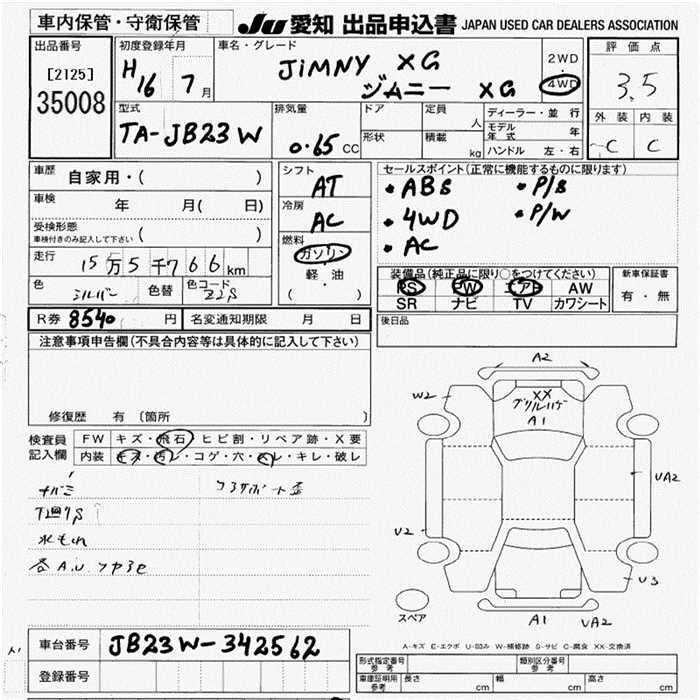 車内保管・守衛保管 JU 愛知 出品申込書 JAPAN USED CAR DEALERS ASSOCIATION
出品番号
[2125]
35008
初度登録年月
H16 7月
車名・グレード
JIMNY XG
ジムニー XG
2WD
・
4WD
評価点
3.5
外装 内装
C C
型式
TA-JB23W
排気量
0.65 CC
ドア
形状
定員 人
積載 kg
ディーラー・並行
モデル年式 年
ハンドル 左・右
車歴 自家用・( )
車検 年 月( 日)
受検形態
車検付きのみ記入して下さい ( )
走行 15万5千766km
色 シルバー 色替 色コード Z2S
シフト AT
冷房 AC
燃料
ガソリン
軽・油
( ・ )
セールスポイント(正常に機能するものに限ります)
・ABS ・P/S
・4WD ・P/W
・AC
装備品(純正品に限り○をつけてください)
PS PW エアB AW
SR ナビ TV カワシート
新車保証書
有・無
R券 8540 円 名変通知期限 月 日
後日品
注意事項申告欄(不具合内容等は具体的に記入して下さい)
修復歴 有 〔箇所 〕
検査員記入欄
FW キズ・飛石・ヒビ割・リペア跡・X要
内装 キズ・汚レ・コゲ・穴・スレ・キレ・破レ
下廻りS
水もれ
各A.U.
コアサポート歪
A2
W2
XX
グリルハゲ
A1
UA2
U2
U3
A1
UA2
スペア
A-キズ E-エクボ U-凹み W-補修跡 S-サビ C-腐食 XX-交換済
車台番号 JB23W-342562
登録番号
型式指定番号 参考
類別区分番号 参考
車庫証明用 参考 長さ cm 幅 cm 高さ cm